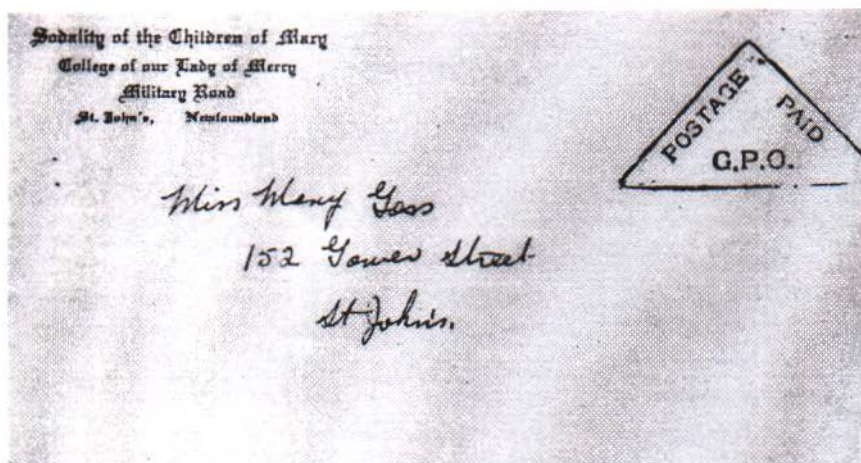 Sodality of the Children of Mary
College of our Lady of Mercy
Military Road
St. John's, Newfoundland
POSTAGE PAID
G.P.O.
Miss Mary Goss
152 Gower Street
St John's.